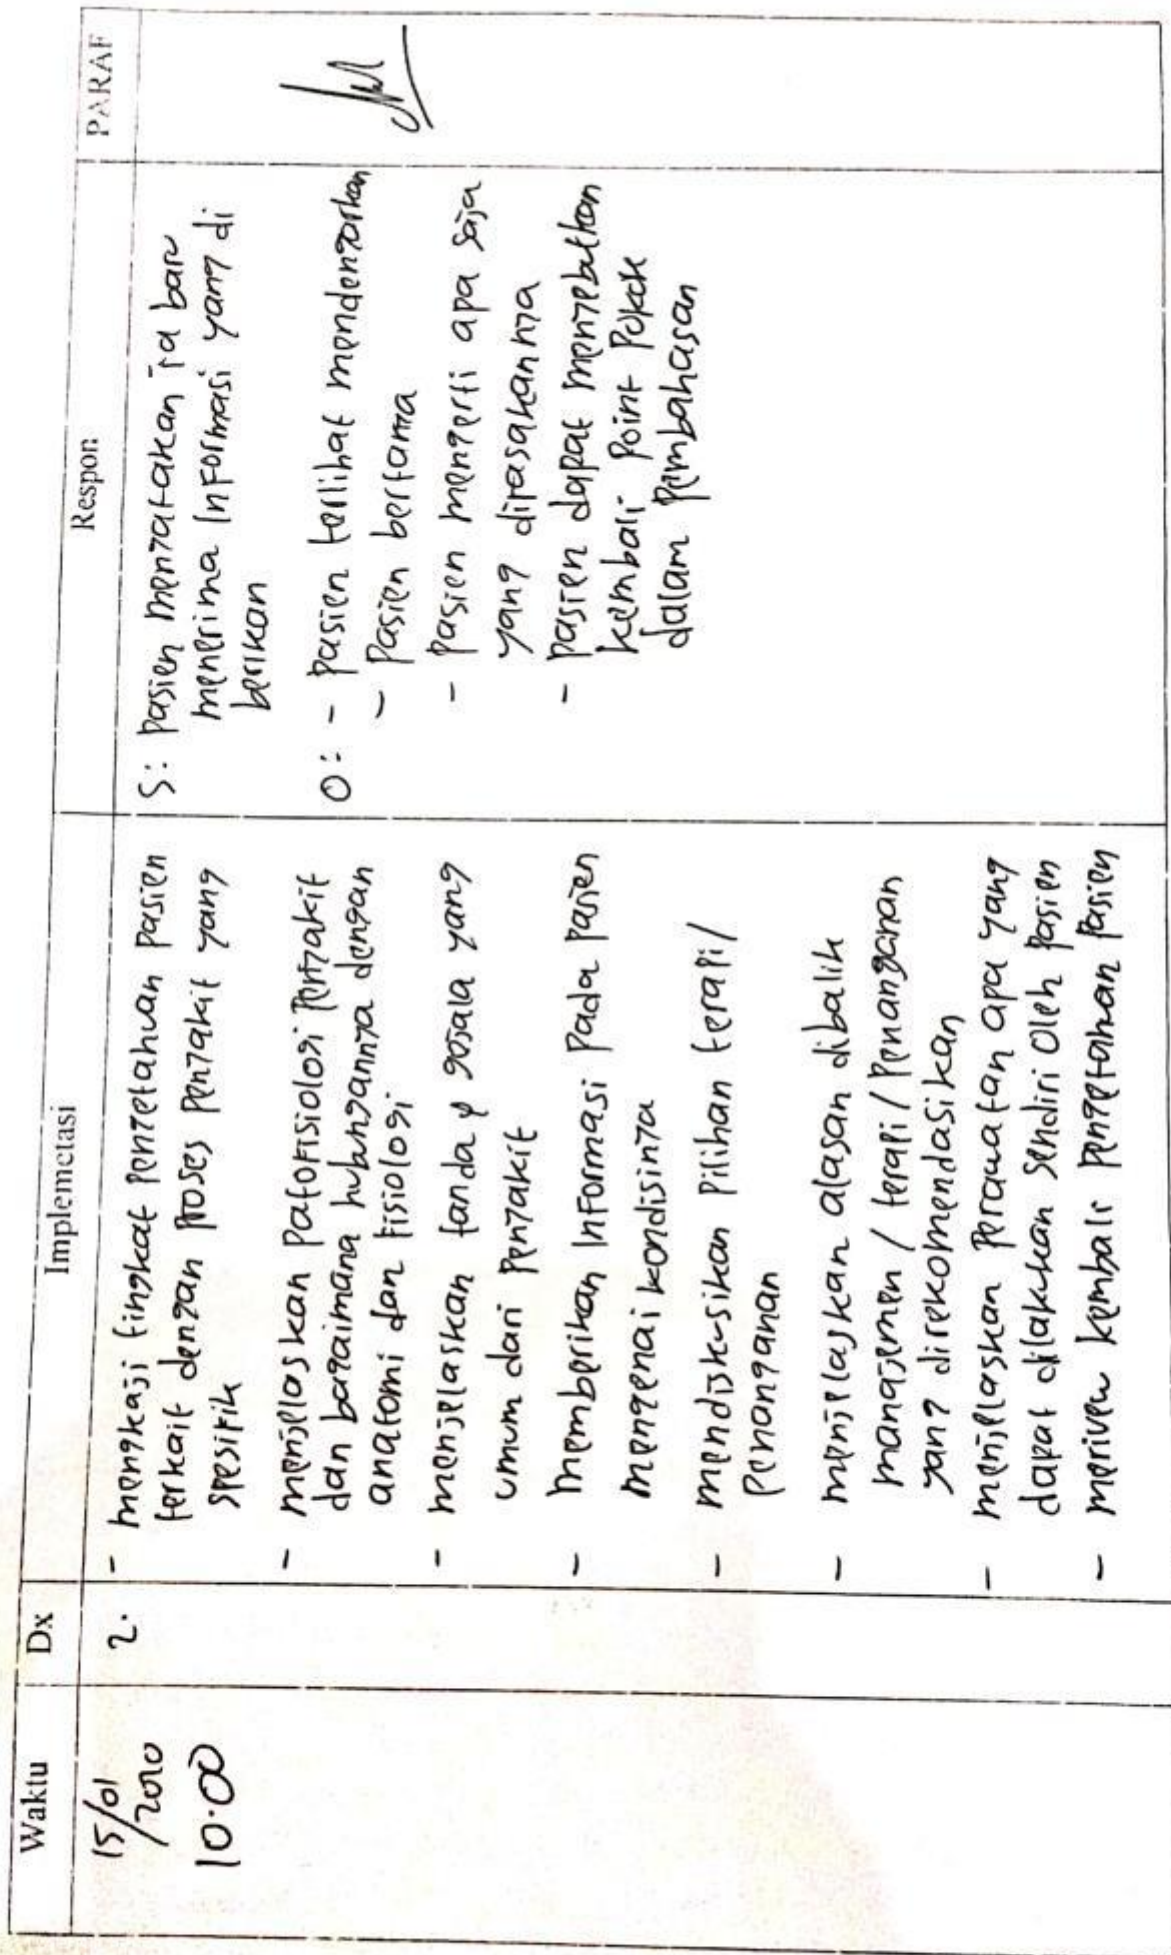 Waktu
Dx
Implemetasi
Respon
PARAF
15/01
/2020
10.00
2.
- mengkaji tingkat pengetahuan pasien
terkait dengan proses penyakit yang
spesifik
- menjelaskan patofisiologi penyakit
dan bagaimana hubungannya dengan
anatomi dan fisiologi
- menjelaskan tanda & gejala yang
umum dari penyakit
- memberikan informasi pada pasien
mengenai kondisinya
- mendiskusikan pilihan terapi /
penanganan
- menjelaskan alasan dibalik
manajemen / terapi / penanganan
yang direkomendasikan
- menjelaskan perawatan apa yang
dapat dilakukan sendiri oleh pasien
- meriveu kembali pengetahuan pasien
S: pasien mengatakan ia baru
menerima informasi yang di
berikan
O: - pasien terlihat mendengarkan
- pasien bertanya
- pasien mengerti apa saja
yang dirasakannya
- pasien dapat menyebutkan
kembali point pokok
dalam pembahasan